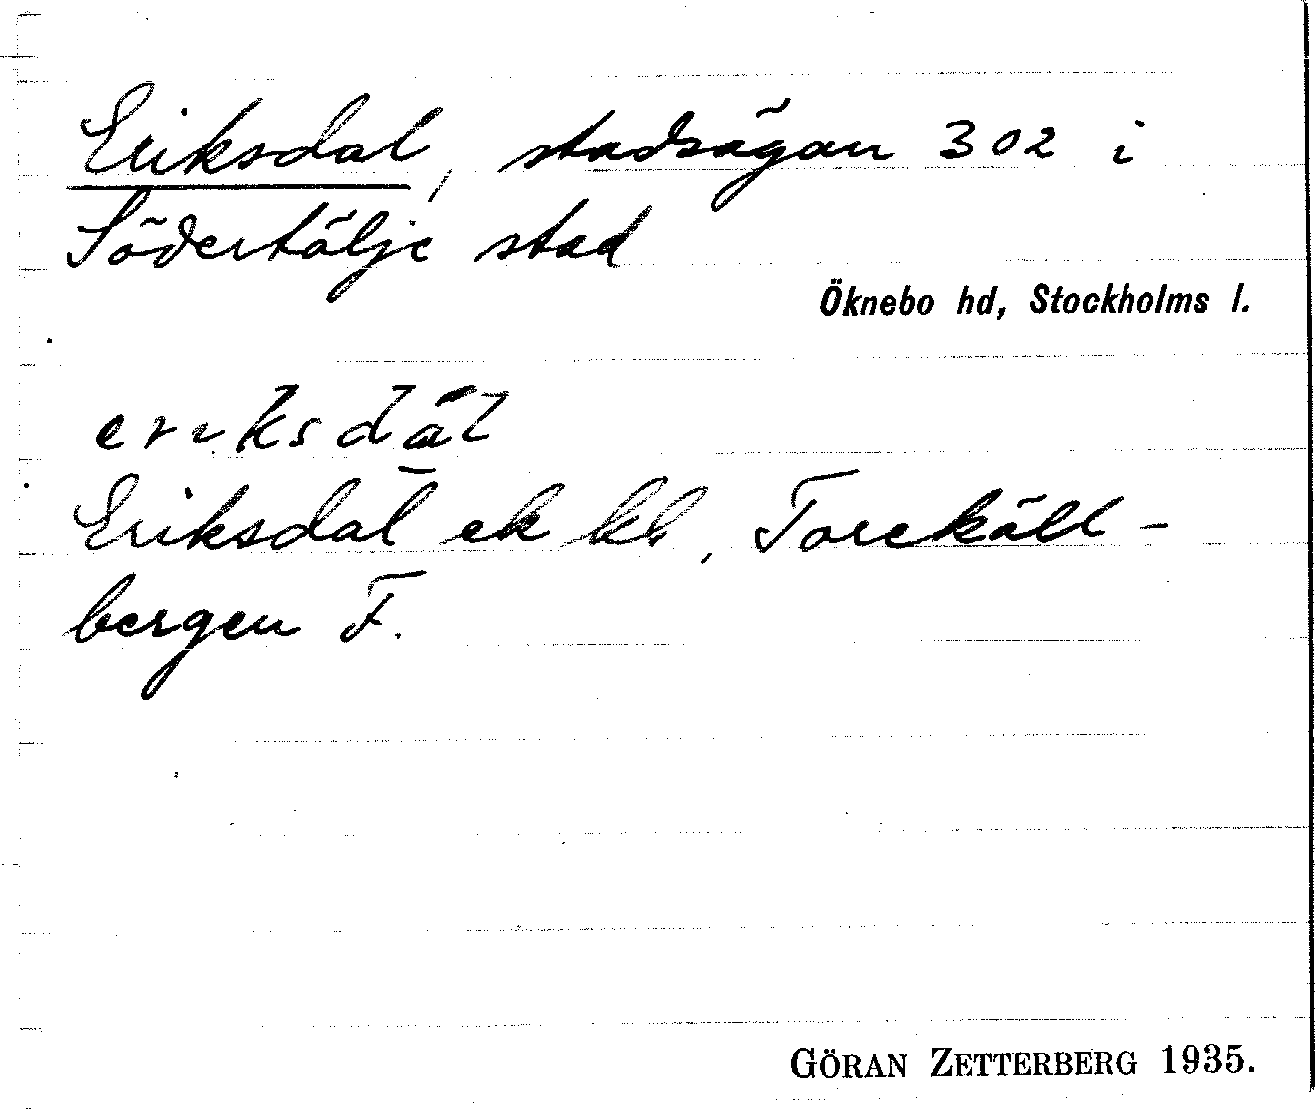 Eriksdal, stadsägan 302 i
Södertälje stad
Öknebo hd, Stockholms l.
eriksdāl
Eriksdal ek bl, Torekäll-
bergen F.
GÖRAN ZETTERBERG 1935.